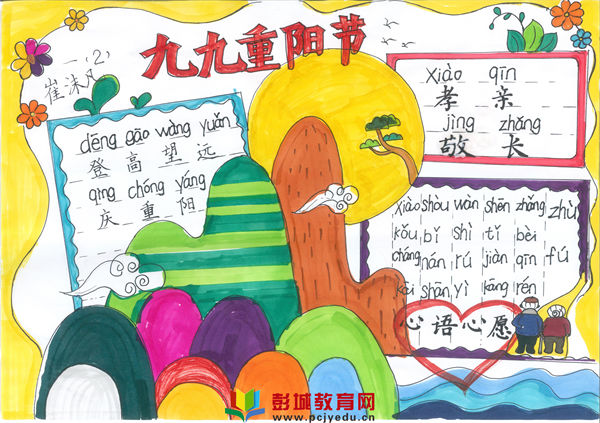 九九重阳节
一（2）
崔沫凡
dēng gāo wàng yuǎn
登高望远
qìng chóng yáng
庆重阳
xiào qīn
孝亲
jìng zhǎng
敬长
xiào shòu wàn shēn zhǎng zhù
kǒu bǐ shì tǐ bèi
cháng nán rú jiàn qīn fú
kāi shān yì kāng rén
心语心愿
彭城教育网
www.pcjyedu.cn